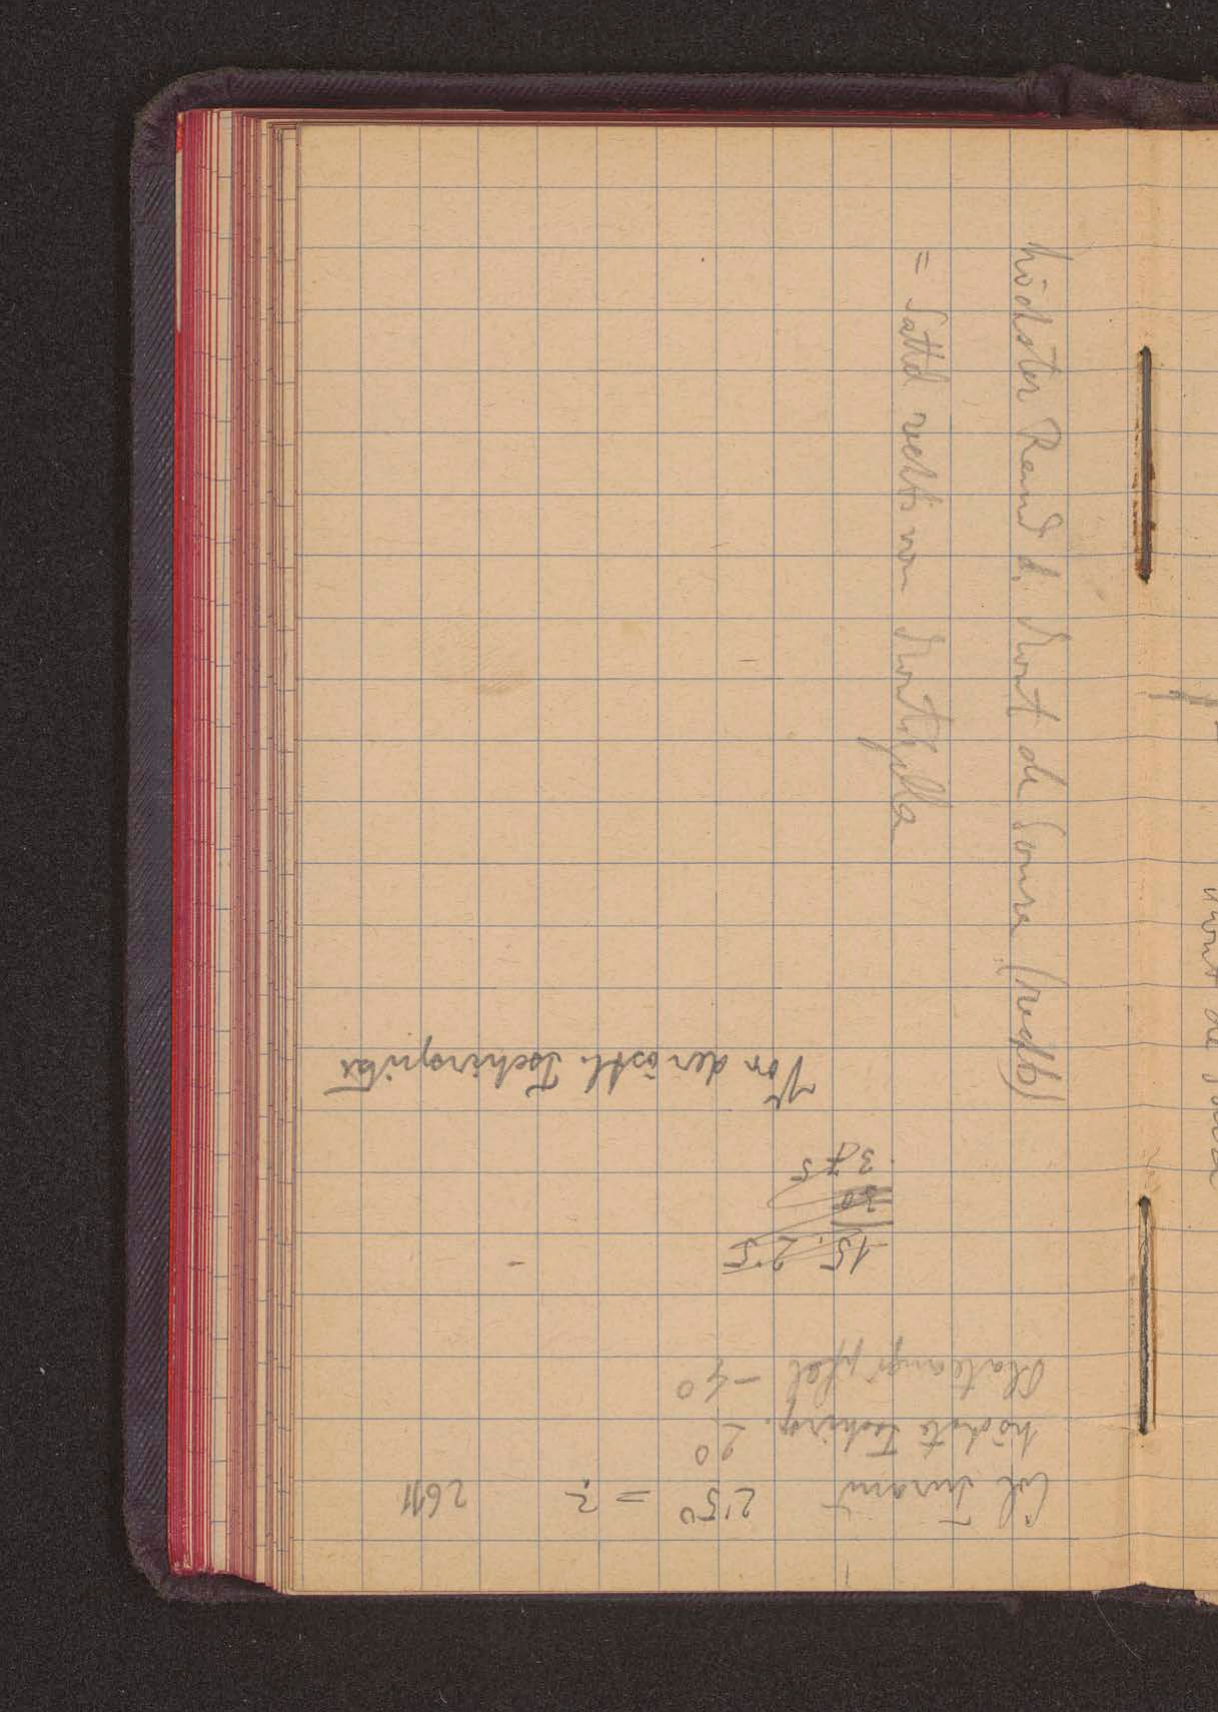 höchster Rand d. Mont de Soura (rechts)
= Sattel rechts von Montijella
Col Turant 2'50 = 2. 2611
höchste Tschirsp. - 20
Plateaugipfel - 40
15. 2'5
30
375
Von der östl. Tschirspitze
mont de